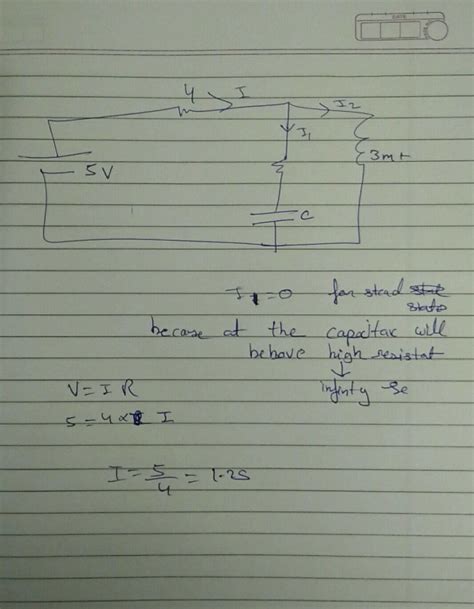 DATE
4 I I2
I1 3mH
5V
C
I1=0 for stad
state
becase at the capacitax will
behave high resistat
V=IR
5=4× I
I=5/4=1.25